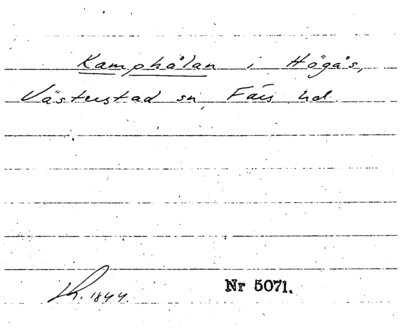 Kamphålan i Högås,
Västerstad sn, Färs hd.
1844.
Nr 5071.